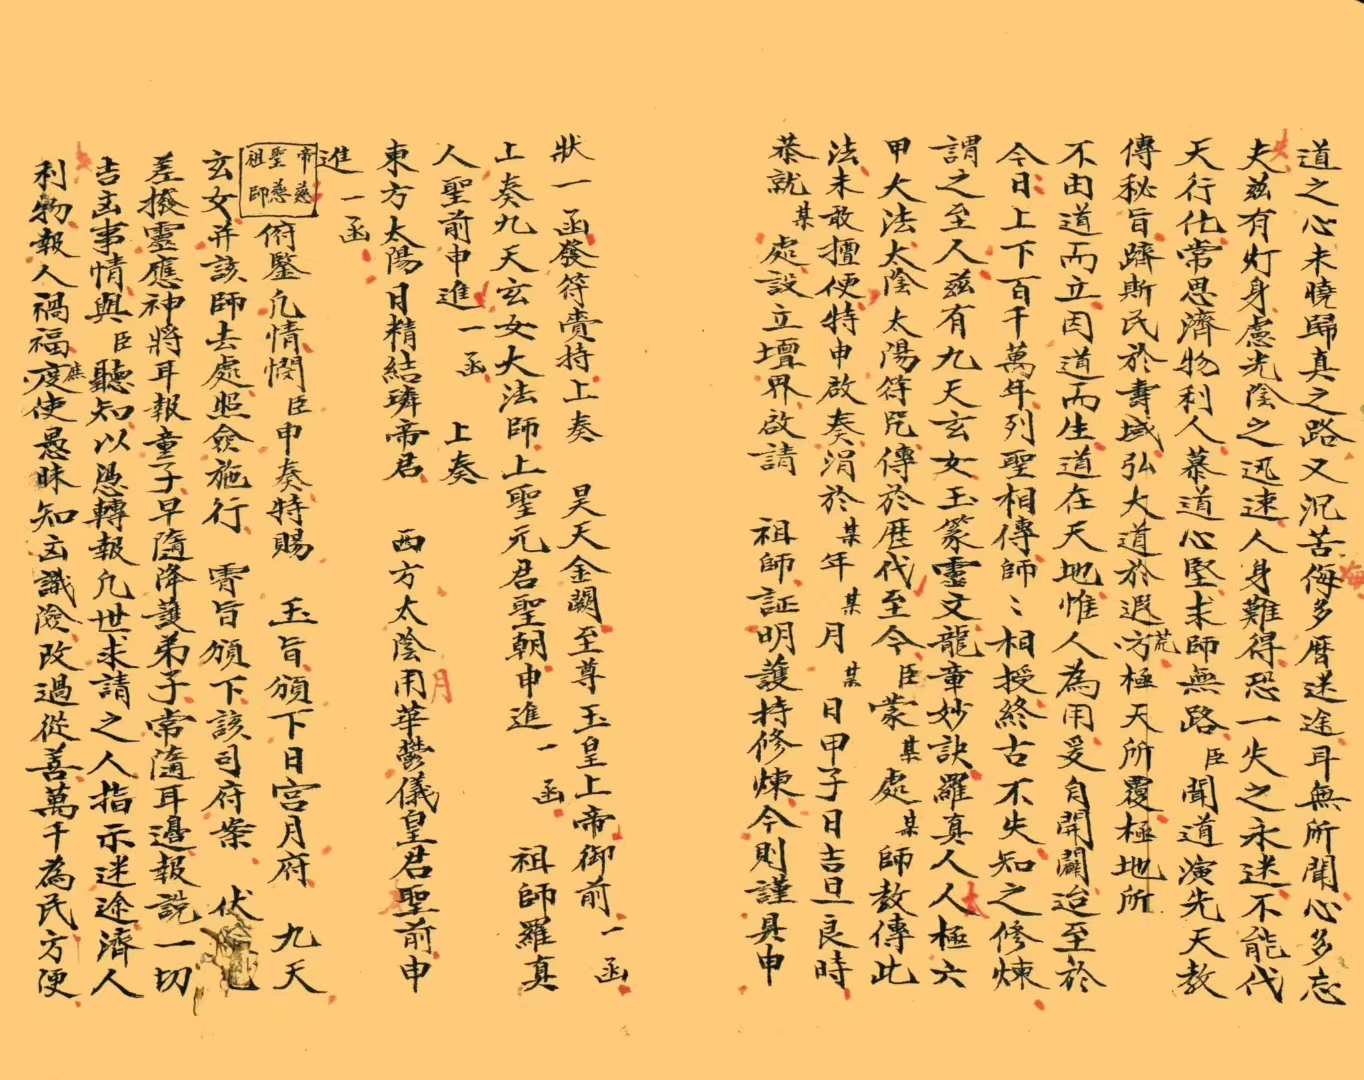 道之心未曉歸真之路又沉苦侮多曆迷途耳無所聞心多忘
海
失
夫茲有灯身慮光陰之迅速人身難得恐一失之永迷不能代
天行化常思濟物利人慕道心堅求師無路臣聞道演先天教
傳秘旨躋斯民於壽域弘大道於遐方極天所覆極地所
荒
不由道而立因道而生道在天地惟人為用爰自開闢迨至於
今日上下百千萬年列聖相傳師〻相授終古不失知之修煉
謂之至人茲有九天玄女玉篆靈文龍章妙訣羅真人人極六
太
甲大法太陰太陽符咒傳於歷代至今臣蒙某處某師教傳此
法未敢擅便特申啟奏涓於某年某月某日甲子日吉旦良時
恭就某處設立壇界啟請 祖師証明護持修煉今則謹具申
狀一函發符賫持上奏 昊天金闕至尊玉皇上帝御前一函
上奏九天玄女大法師上聖元君聖朝申進一函 祖師羅真
人聖前申進一函 上奏
東方太陽日精結璘帝君 西方太陰用華鬱儀皇君聖前申
月
進一函
帝慈聖慈祖師俯鑒凡情憫臣申奏特賜 玉旨頒下日宮月府 九天
玄女并該師去處照僉施行 霄旨頒下該司府案 伏
差撥靈應神將耳報童子早隨降護弟子常隨耳邊報說一切
吉凶事情與臣聽知以憑轉報凡世求請之人指示迷途濟人
利物報人禍福度使愚昧知玄識澰改過從善萬千為民方便
庶